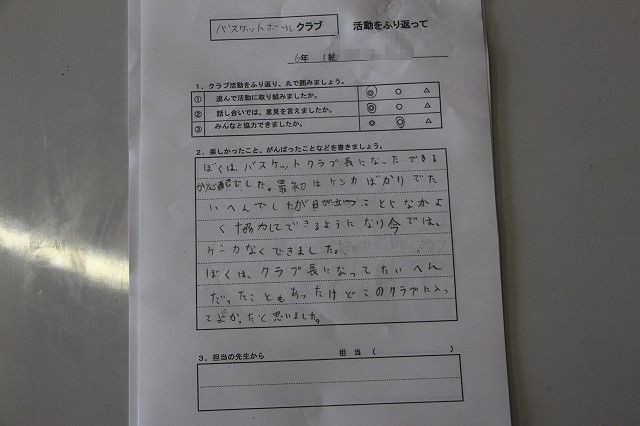 バスケットボールクラブ 活動をふり返って
6年 1組
1．クラブ活動をふり返り、丸で囲みましょう。
① 進んで活動に取り組みましたか。 ◎ ○ △
② 話し合いでは、意見を言えましたか。 ◎ ○ △
③ みんなと協力できましたか。 ◎ ○ △
2．楽しかったこと、がんばったことなどを書きましょう。
ぼくは、バスケットクラブ長になったできる
か心配でした。最初はケンカばかりでた
いへんでしたが日が立つごとになかよ
く協力してできるようになり今では、
ケンカなくできました。
ぼくは、クラブ長になってたいへん
だったこともあったけどこのクラブに入っ
てよかったと思いました。
3．担当の先生から 担当（ ）